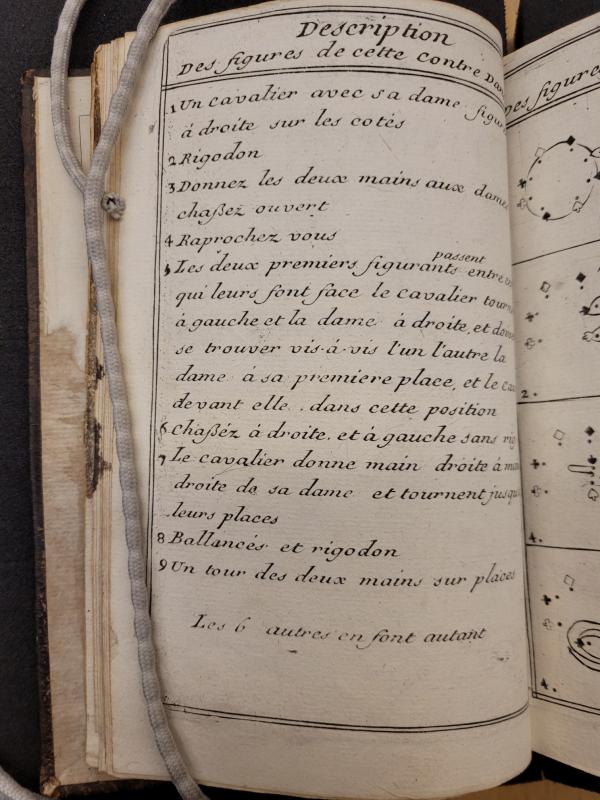 Description
Des figures de cette Contre Dan
1 Un cavalier avec sa dame figur
á droite sur les cotés
2 Rigodon
3 Donnez les deux mains aux dames
chaßez ouvert
4 Raprochez vous
5 Les deux premiers figurants passent entre
qui leurs font face le cavalier tourn
à gauche et la dame à droite, et doiv
se trouver vis-á-vis l'un l'autre la
dame á sa premiere place, et le ca
devant elle . dans cette position
6 chaßéz à droite. et à gauche sans rig
7 Le cavalier donne main droite á ma
droite de sa dame et tournent jusqu
leurs places
8 Ballancés et rigodon
9 Un tour des deux mains sur places
Les 6 autres en font autant
Des figures
2.
4.
4.